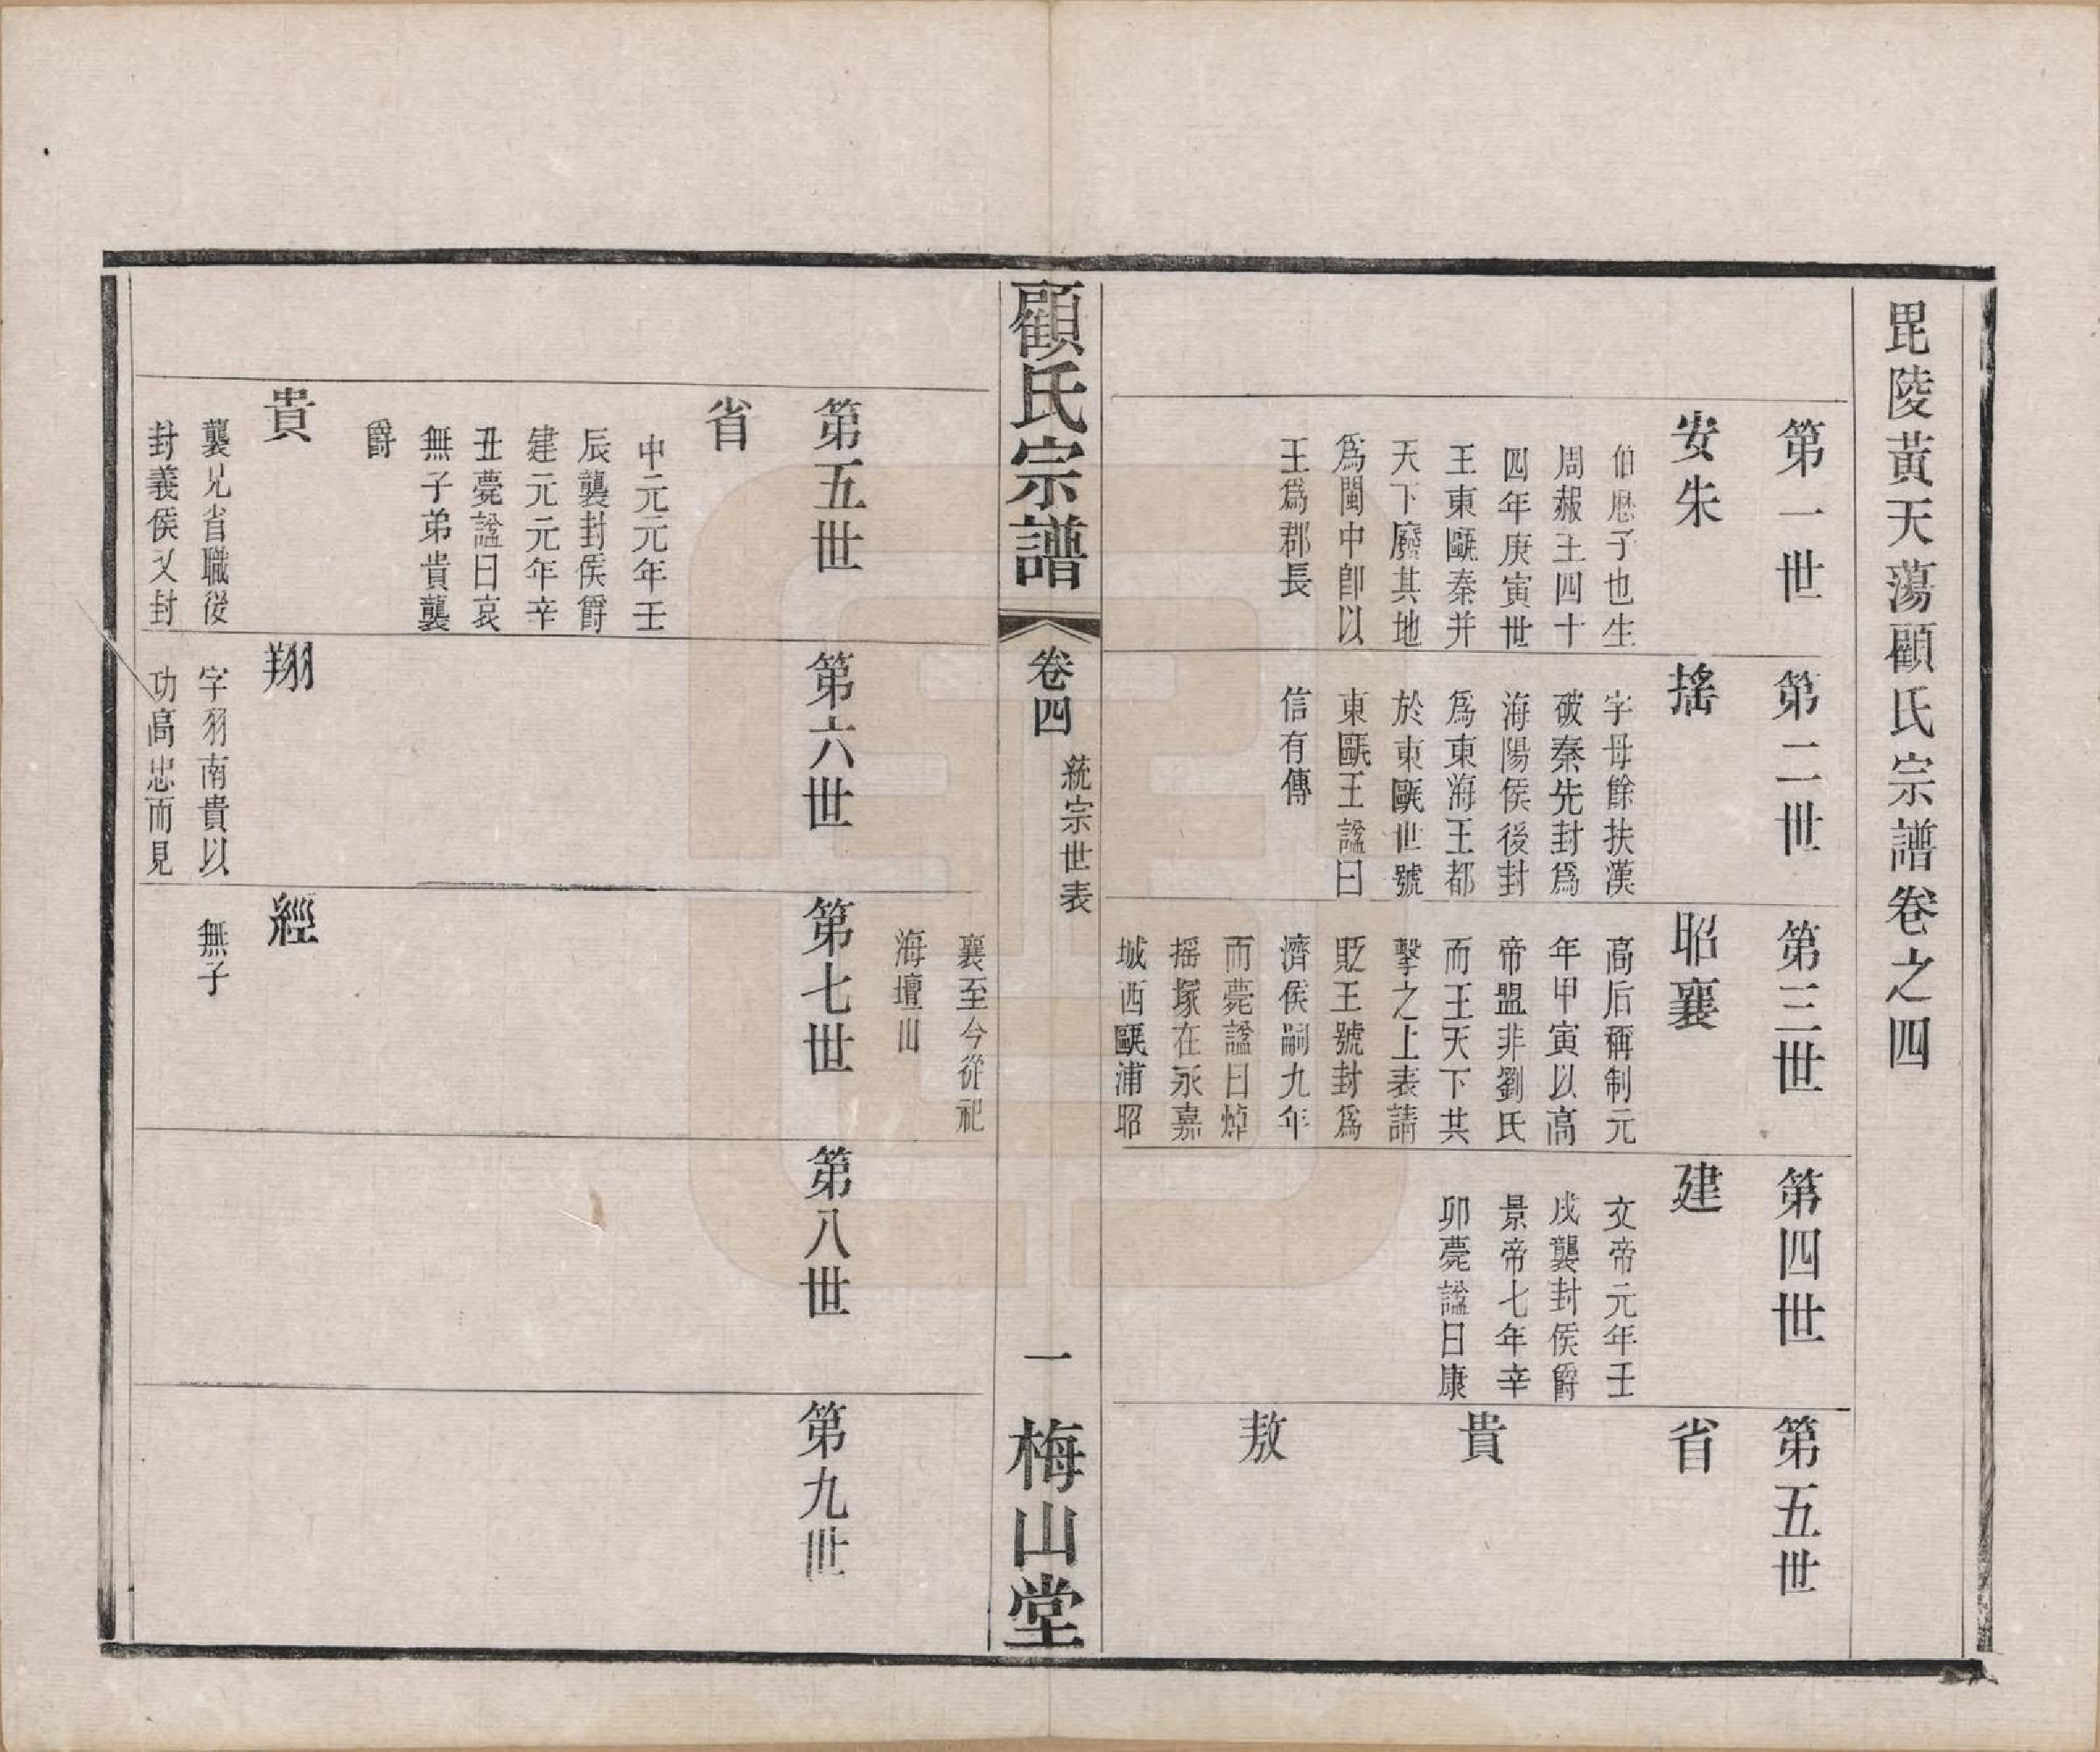 毘陵黃天蕩顧氏宗譜卷之四
第一世
安朱
伯厯子也生
周赧王四十
四年庚寅世
王東甌秦并
天下廢其地
爲閩中卽以
王爲郡長
第二世
搖
字毋餘扶漢
破秦先封爲
海陽侯後封
爲東海王都
於東甌世號
東甌王諡曰
信有傳
第三世
昭襄
高后稱制元
年甲寅以高
帝盟非劉氏
而王天下共
擊之上表請
貶王號封爲
濟侯嗣九年
而薨諡曰焯
搖塚在永嘉
城西甌浦昭
襄至今從祀
海壇山
第四世
建
文帝元年壬
戌襲封侯爵
景帝七年辛
卯薨諡曰康
第五世
省
貴
敖
顧氏宗譜
卷四
統宗世表
一
梅山堂
第五世
省
中元元年壬
辰襲封侯爵
建元元年辛
丑薨諡曰哀
無子弟貴襲
爵
貴
襲兄省職後
封義侯又封
第六世
翔
字羽南貴以
功高忠而見
第七世
經
無子
第八世
第九世